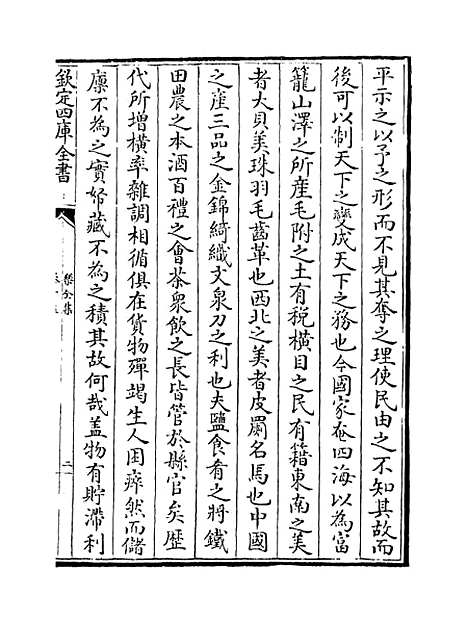 平示之以予之形而不見其奪之理使民由之不知其故而
後可以制天下之變成天下之務也今國家奄四海以為富
籠山澤之所産毛附之土有税橫目之民有籍東南之美
者大貝美珠羽毛齒革也西北之美者皮罽名馬也中國
之產三品之金錦綺織文泉刀之利也夫鹽食肴之將鐵
田農之本酒百禮之會茶衆飲之長皆管於縣官矣歴
代所增橫率雜調相循俱在貨物殫竭生人困瘁然而儲
廪不為之實帑藏不為之積其故何哉蓋物有貯滯利
欽定四庫全書
樂全集
二